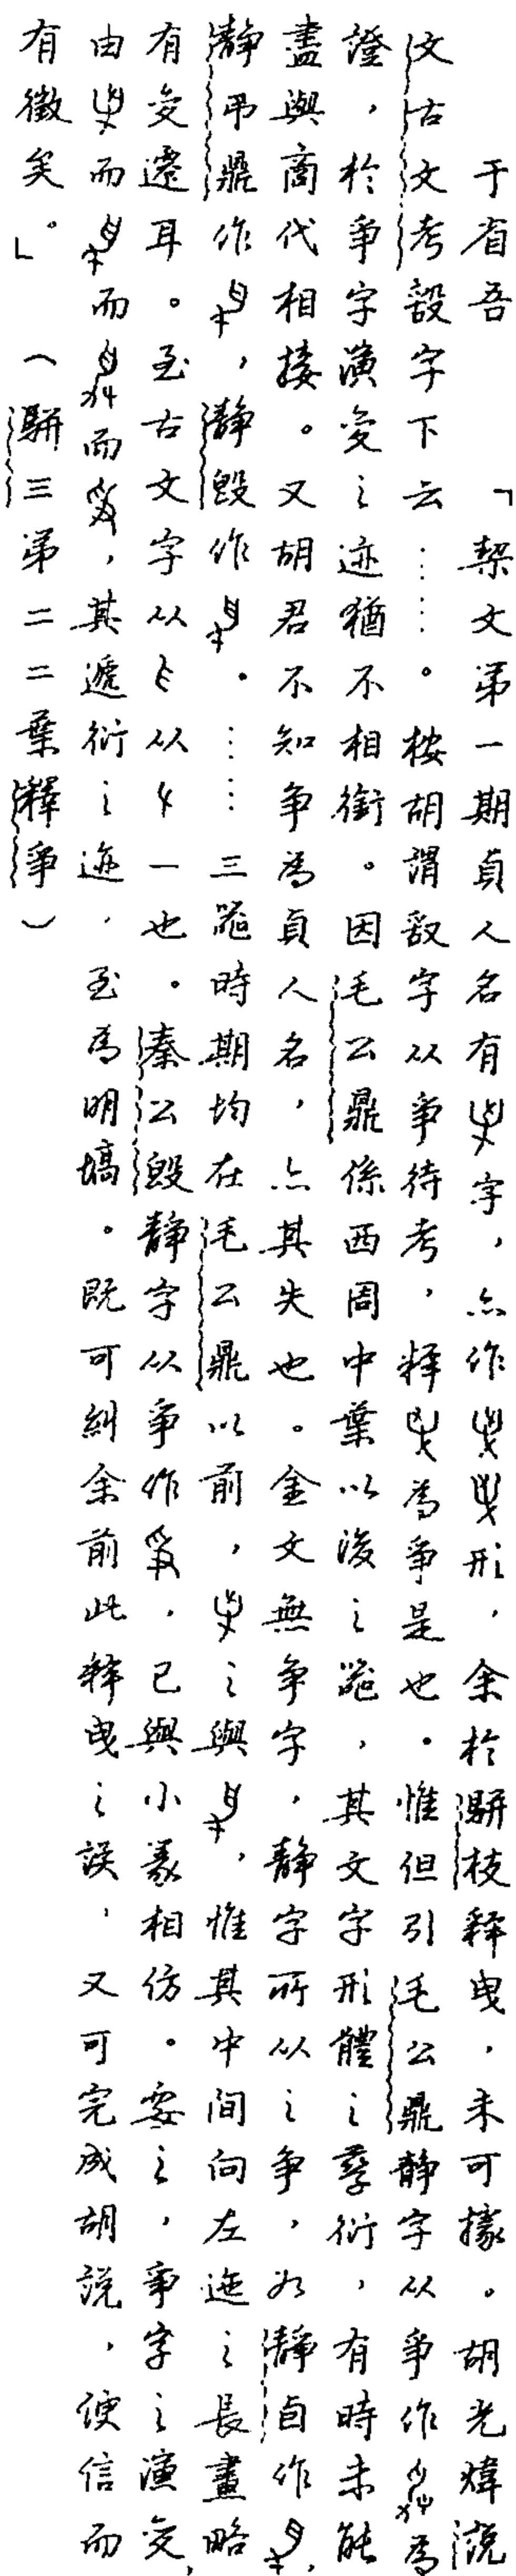 于省吾 「栔文弟一期貞人名有字，亦作形，余於駢枝釋曳，未可據。胡光煒說
文古文考設字下云……。桉胡謂字从爭待考，釋為爭是也。惟但引毛公鼎靜字从爭作為
證，於爭字演变之迹猶不相銜。因毛公鼎係西周中葉以後之器，其文字形體之孳衍，有時未能
盡與商代相接。又胡君不知爭為貞人名，亦其失也。金文無爭字，靜字所从之爭，如靜卣作，
靜弔鼎作，靜𣪘作。……三器時期均在毛公鼎以前，之與，惟其中間向左迤之長畫略
有变遷耳。至古文字从从一也。秦公𣪘靜字从爭作，已與小篆相仿。要之，爭字之演变，
由而而而，其遞衍之迹，至為明塙。既可糾余前此釋曳之誤，又可完成胡說，使信而
有徵矣。」（駢三第二二葉釋爭）